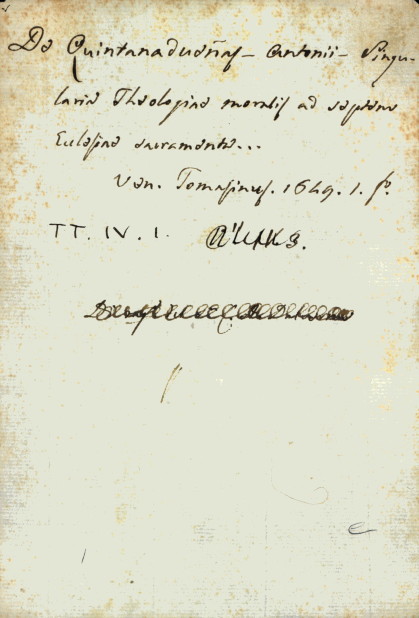 De Quintanadueñas - Antonii - Singu-
laria Theologiae moralis ad septem
Eclesiae sacramenta...
Ven. Tomasinus. 1649. 1. fo.
TT. IV. 1.